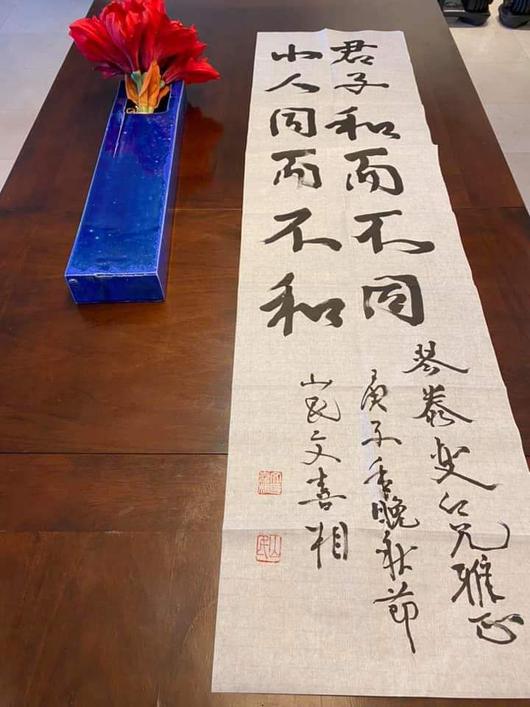 君子和而不同
小人同而不和
琴仁兄雅正
庚子年晚秋節
山民文喜相
山民